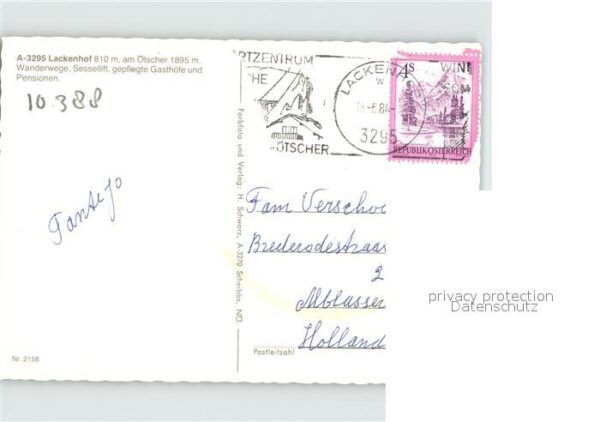 A-3295 Lackenhof 810 m, am Ötscher 1895 m.
Wanderwege, Sessellift, gepflegte Gasthöfe und
Pensionen.
10.388
Tante jo
Nr. 2156
Farbfoto und Verlag: H. Schwarz, A-3270 Scheibbs, NÖ.
RTZENTRUM
HE
ÖTSCHER
LACKEN
3295
4S
REPUBLIK ÖSTERREICH
Fam Verscho
Brederodestraa
2
Alblasser
Holland
Postleitzahl
privacy protection
Datenschutz